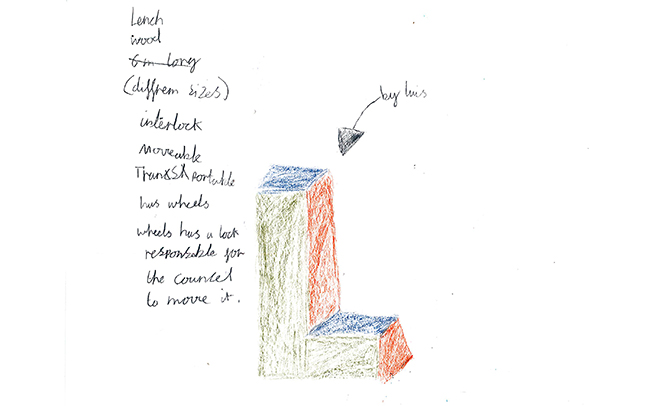 Lench
wood
6m long
(diffrem sizes)
interlock
moveable
Transportable
has wheels
wheels has a lock
responsable for
the councel
to move it.
by luis